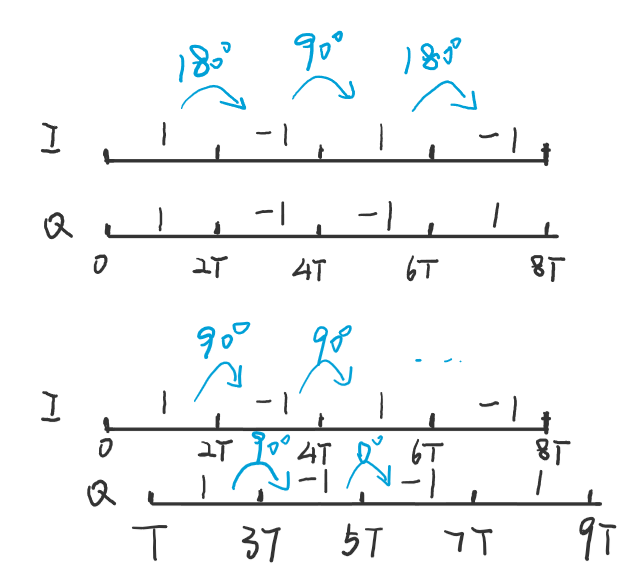 180° 90° 180°
I 1 -1 1 -1
Q 1 -1 -1 1
0 2T 4T 6T 8T
90° 90° ...
I 1 -1 1 -1
0 2T 4T 6T 8T
90° 0°
Q 1 -1 -1 1
T 3T 5T 7T 9T